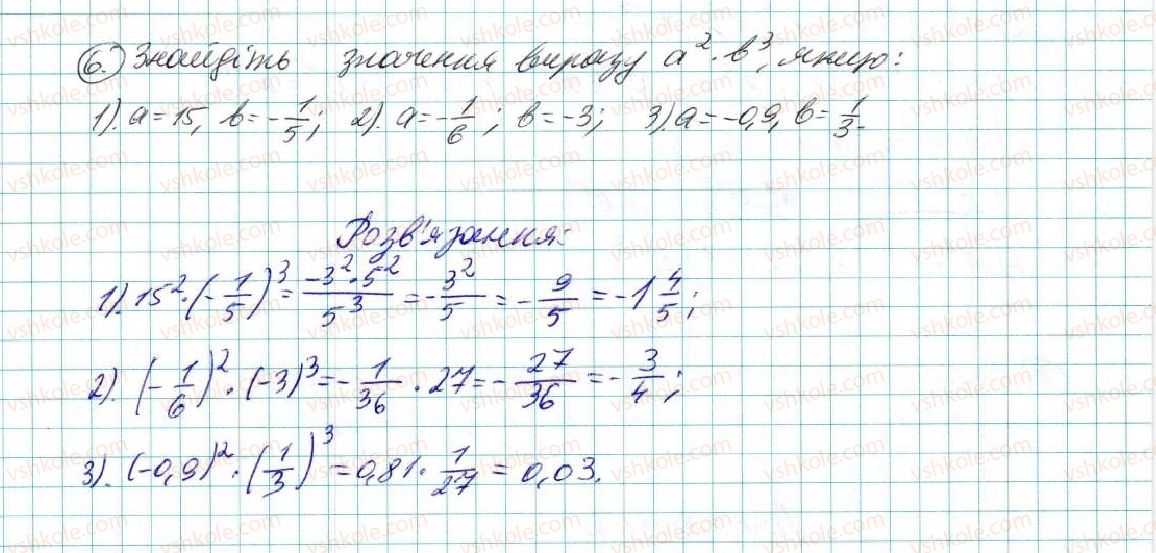 6. Знайдіть значення виразу a²·b³, якщо:
1). a=15, b=-1/5; 2). a=-1/6; b=-3; 3). a=-0,9, b=1/3.
Розв'язання:
1). 15²·(-1/5)³ = -3²·5²/5³ = -3²/5 = -9/5 = -1 4/5;
2). (-1/6)²·(-3)³ = -1/36·27 = -27/36 = -3/4;
3). (-0,9)²·(1/3)³ = 0,81·1/27 = 0,03.
vshkole.com